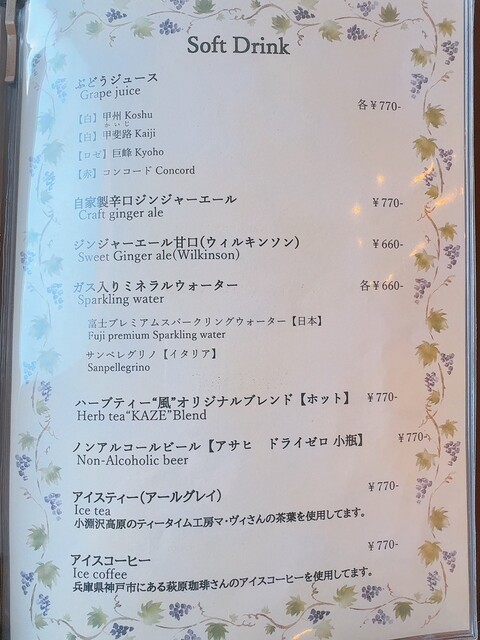 Soft Drink
ぶどうジュース
Grape juice
各¥770-
【白】甲州 Koshu
かいじ
【白】甲斐路 Kaiji
【ロゼ】巨峰 Kyoho
【赤】コンコード Concord
自家製辛口ジンジャーエール ¥770-
Craft ginger ale
ジンジャーエール甘口(ウィルキンソン) ¥660-
Sweet Ginger ale(Wilkinson)
ガス入りミネラルウォーター 各¥660-
Sparkling water
富士プレミアムスパークリングウォーター【日本】
Fuji premium Sparkling water
サンペレグリノ【イタリア】
Sanpellegrino
ハーブティー“風”オリジナルブレンド【ホット】 ¥770-
Herb tea“KAZE”Blend
ノンアルコールビール【アサヒ ドライゼロ 小瓶】 ¥770-
Non-Alcoholic beer
アイスティー(アールグレイ) ¥770-
Ice tea
小淵沢高原のティータイム工房マ・ヴィさんの茶葉を使用してます。
アイスコーヒー ¥770-
Ice coffee
兵庫県神戸市にある萩原珈琲さんのアイスコーヒーを使用してます。